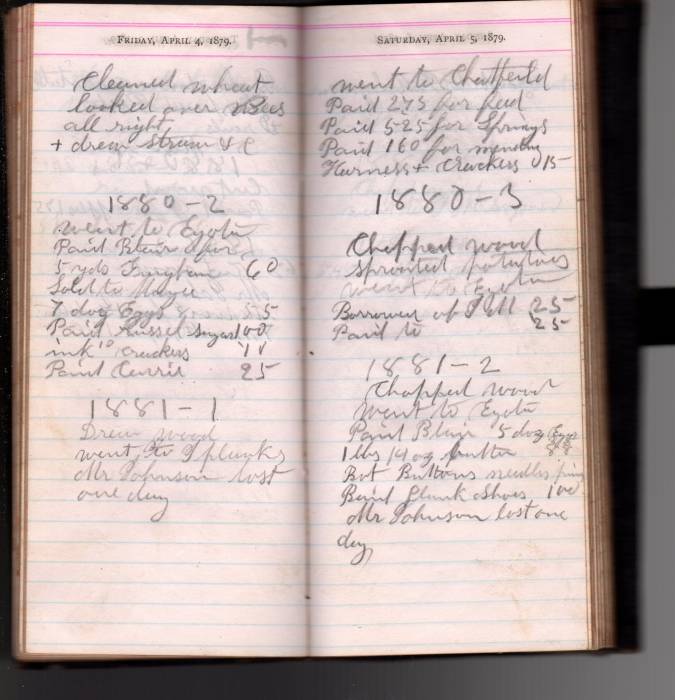 FRIDAY, APRIL 4, 1879.
Cleaned wheat
looked over Bees
all right
+ drew straw
1880-2
went to Eyota
Paid Blair for
5 yds Gingham 60
Sold to
7 doz Eggs 55
Paid Russel sugar 100
ink 10 crackers
Paid Currie 25
1881-1
Drew wood
went to Plunks
Mr Johnson lost
one day
SATURDAY, APRIL 5, 1879.
went to Chatfield
Paid 275 for feed
Paid 525 for Springs
Paid 160 for mending
Harness + Crackers 15
1880-3
Chopped wood
sprouted potatoes
went to Eyota
Borrowed of Pell 25
Paid to 25
1881-2
Chopped wood
Went to Eyota
Paid Blair 5 doz Eggs
1 lbs 14 oz butter 88
Bot Buttons needles pins
Paid Plunk Shoes 100
Mr Johnson lost one
day